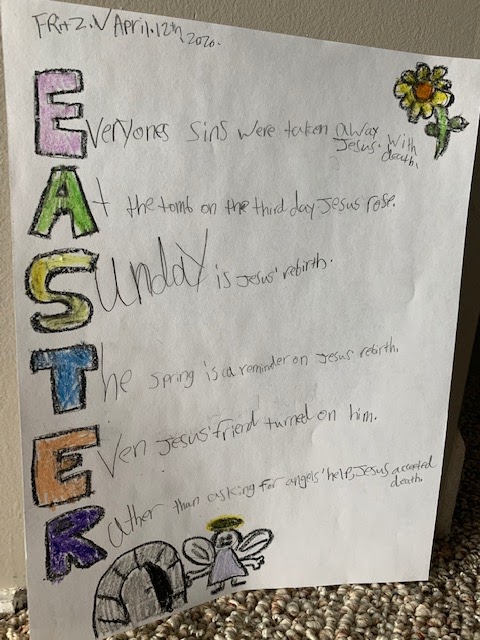 Fritz.V April.12th, 2020.
Everyones sins were taken away with
Jesus' death.
At the tomb on the third day Jesus rose.
Sunday is Jesus' rebirth.
The spring is a reminder on Jesus rebirth.
Even Jesus' friend turned on him.
Rather than asking for angels' help, Jesus accepted
death.